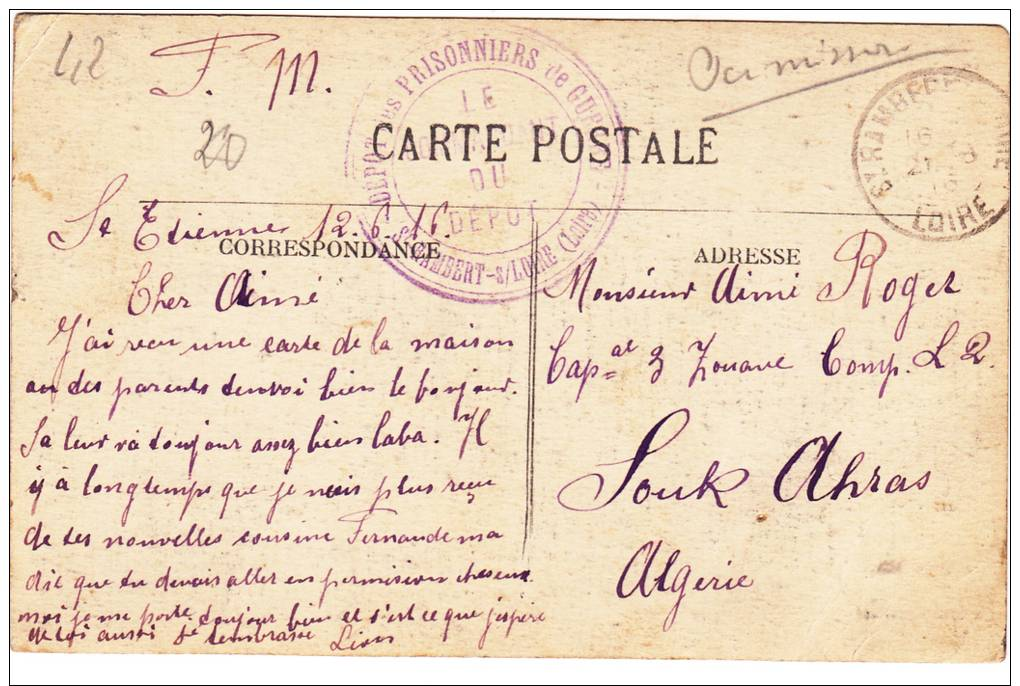 1,2
F. M.
Permission
20
CARTE POSTALE
DÉPOT des PRISONNIERS de GUERRE
LE
COMMANDANT
DU
DÉPOT
St RAMBERT-s/LOIRE (Loire)
St RAMBERT LOIRE
16
21 6
16
LOIRE
St Etienne 12.6.16.
CORRESPONDANCE
Cher Aimé
J'ai recu une carte de la maison
ou tes parents tenvoi bien le bonjour.
Sa leur va toujour assez bien laba. Il
y à longtemps que je nais plus reçu
de tes nouvelles cousine Fernande ma
dit que tu devais aller en permision cheseux
moi je me porte toujour bien et s'est ce que j'espère
de toi aussi Je tembrasse Lion
ADRESSE
Monsieur Aimé Roget
Cap=al 3 Zouave Comp. L 2.
Souk Ahras
Algerie